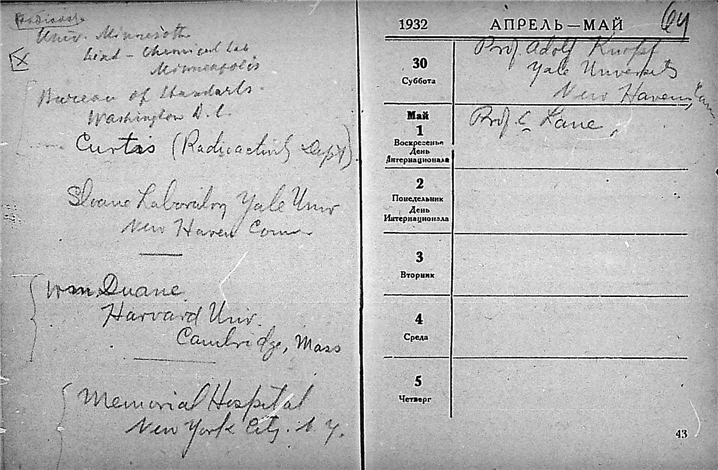 Univ. Minnesota
Chemical Lab
Minneapolis
Bureau of Standarts.
Washington D.C.
Curtis (Radioactivity Dept).
Sloane Laboratory Yale Univ
New Haven Conn
Wm. Duane.
Harvard Univ.
Cambridge, Mass
Memorial Hospital
New York City. N.Y.
64
1932 АПРЕЛЬ—МАЙ
30
Суббота
Prof. Adolf Knopf
Yale University
New Haven, Conn.
Май
1
Воскресенье
День
Интернационала
Prof. C. Lane,
2
Понедельник
День
Интернационала
3
Вторник
4
Среда
5
Четверг
43